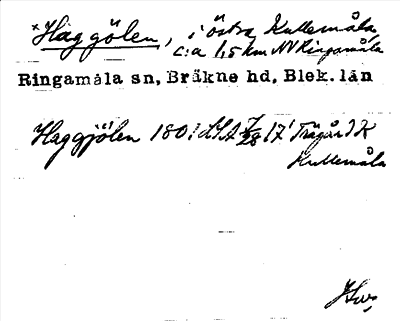 ×Haggölen, i östra Kullemåla
c:a 1,5 km NV Ringamåla
Ringamåla sn, Bräkne hd, Blek. län
Haggjölen 1801 LSA 7/28 17' Trägår. IK
Kullemåla